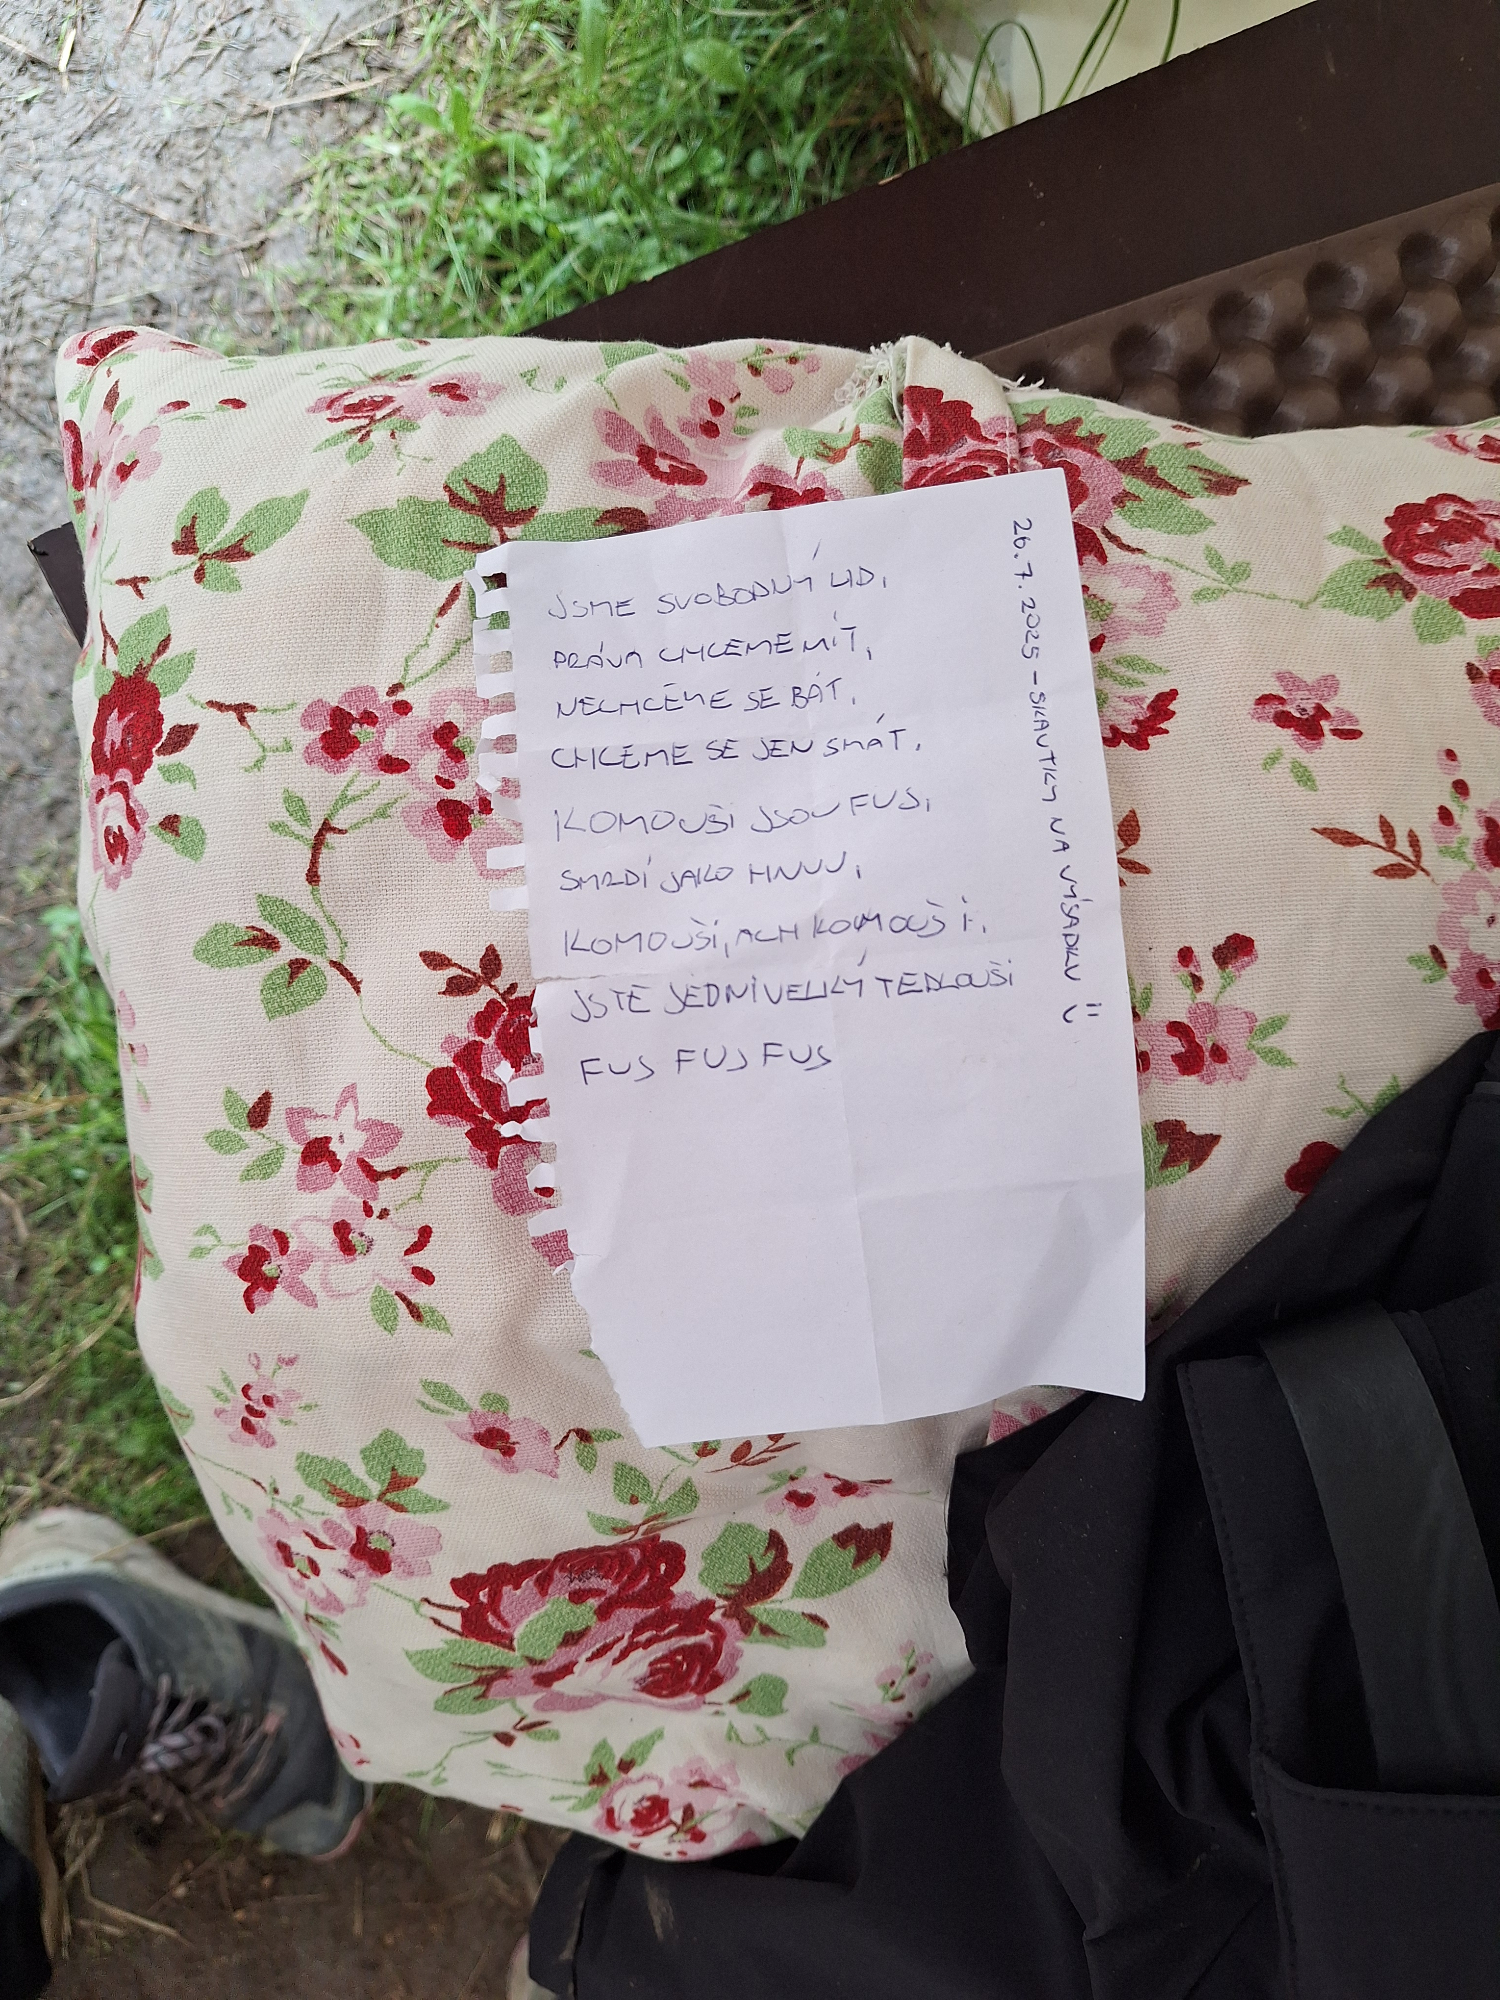 JSME SVOBODNÝ LID,
PRÁVA CHCEME MÍT,
NECHCEME SE BÁT,
CHCEME SE JEN SMÁT,
KOMOUŠI JSOU FUJ,
SMRDÍ JAKO HNUJ,
KOMOUŠI, ACH KOMOUŠI,
JSTE JEDNI VELKÝ TEPLOUŠI
FUJ FUJ FUJ
26.7.2025 - SKAUTKY NA VÝSADKU :)